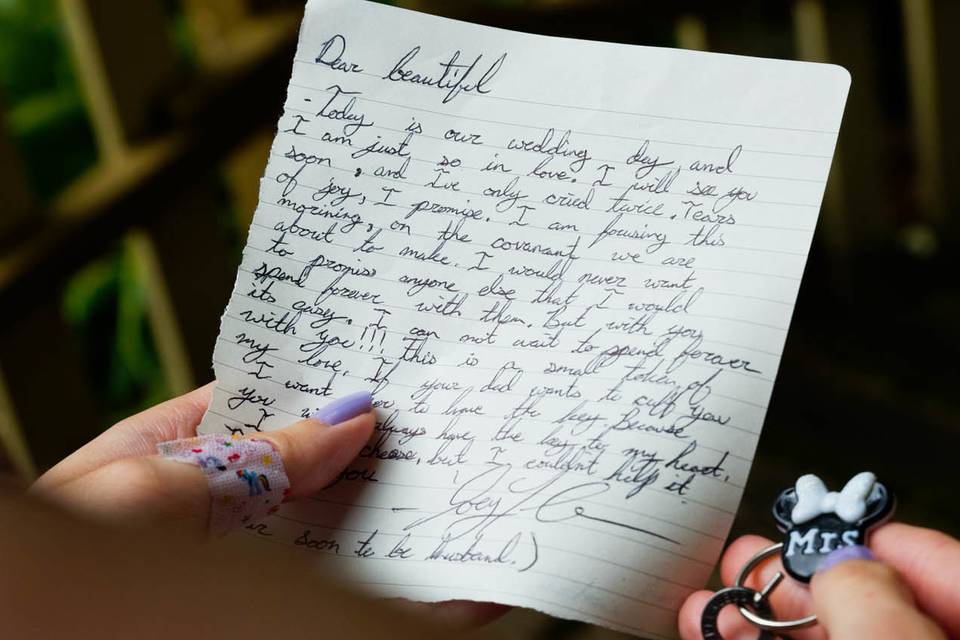 Dear beautiful
- Today is our wedding day and
I am just so in love. I will see you
soon, and I've only cried twice. Tears
of joy, I promise. I am focusing this
morining, on the covenant we are
about to make. I would never want
to promiss anyone else that I would
spend forever with them. But with you
its easy. I can not wait to spend forever
with you!!! This is a small token of
my love. If your dad wants to cuff you
I want to have the key because
you always have the key to my heart.
I cheese, but I couldn't help it
you
- Joey
soon to be husband.)
Mrs